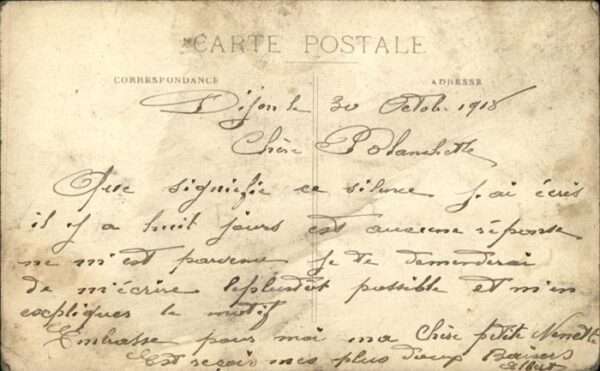 CARTE POSTALE
CORRESPONDANCE ADRESSE
Dijon le 30 Octob. 1918
Chère Blanchette
Que signifie ce silence j'ai écris
il y a huit jours est aucune réponse
ne m'est parvenu je te demanderai
de m'écrire leplustôt possible et m'en
expliquer le motif
Embrasse pour moi ma Chère petite Nenette
Est reçois mes plus doux Baisers
Albert